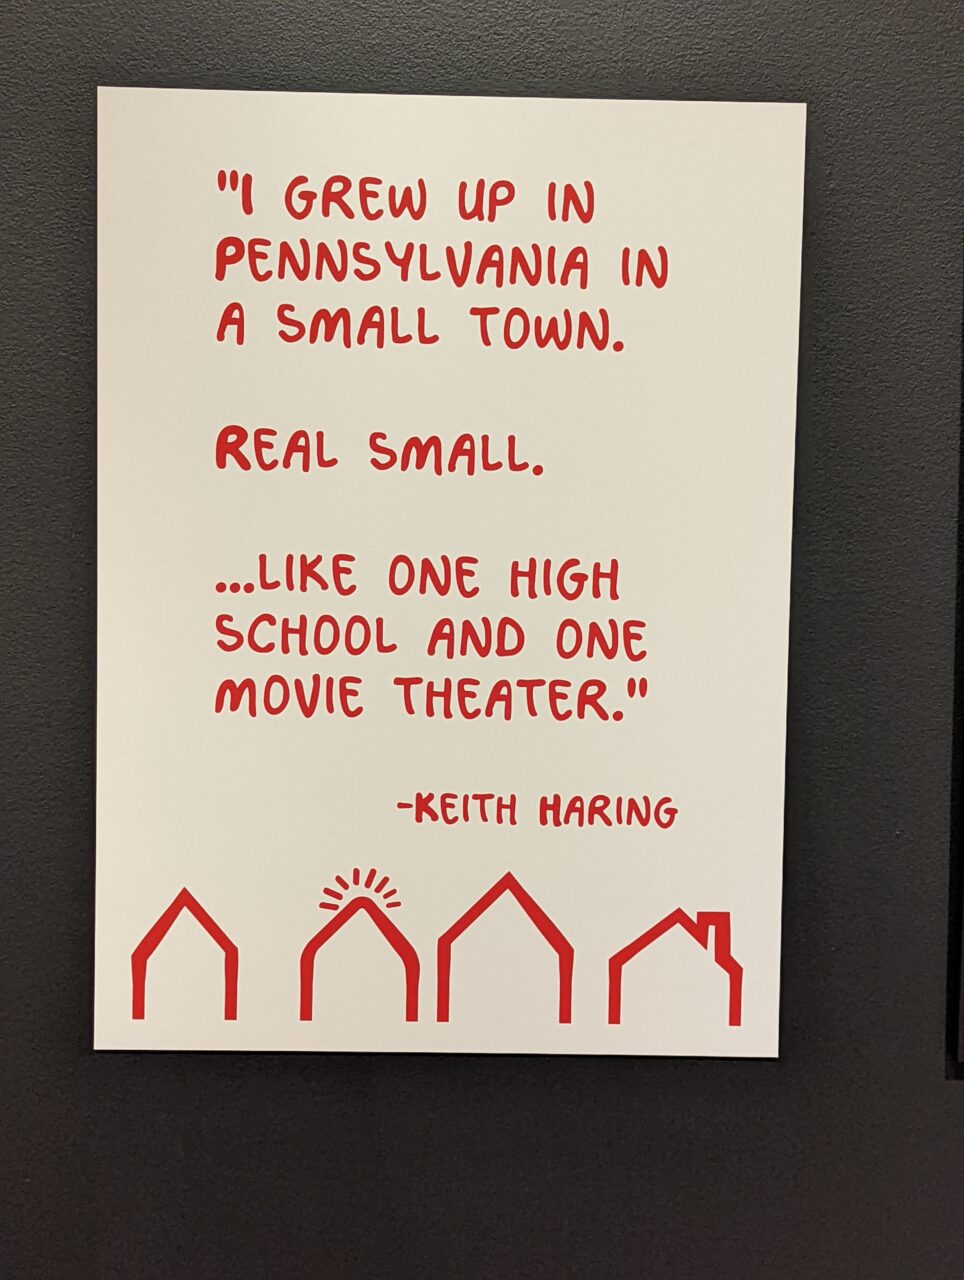 "I GREW UP IN
PENNSYLVANIA IN
A SMALL TOWN.
REAL SMALL.
...LIKE ONE HIGH
SCHOOL AND ONE
MOVIE THEATER."
-KEITH HARING